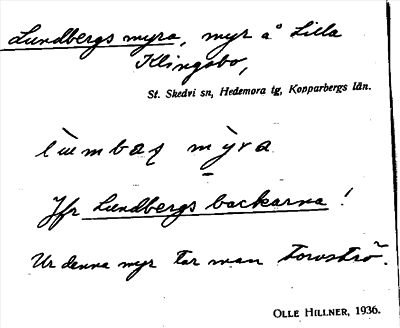 Lundbergs myra, myr å Lilla
Klingsbo,
St. Skedvi sn, Hedemora tg, Kopparbergs län.
myra
Jfr Lundbergs backarna!
Ur denna myr tar man torvströ.
OLLE HILLNER, 1936.